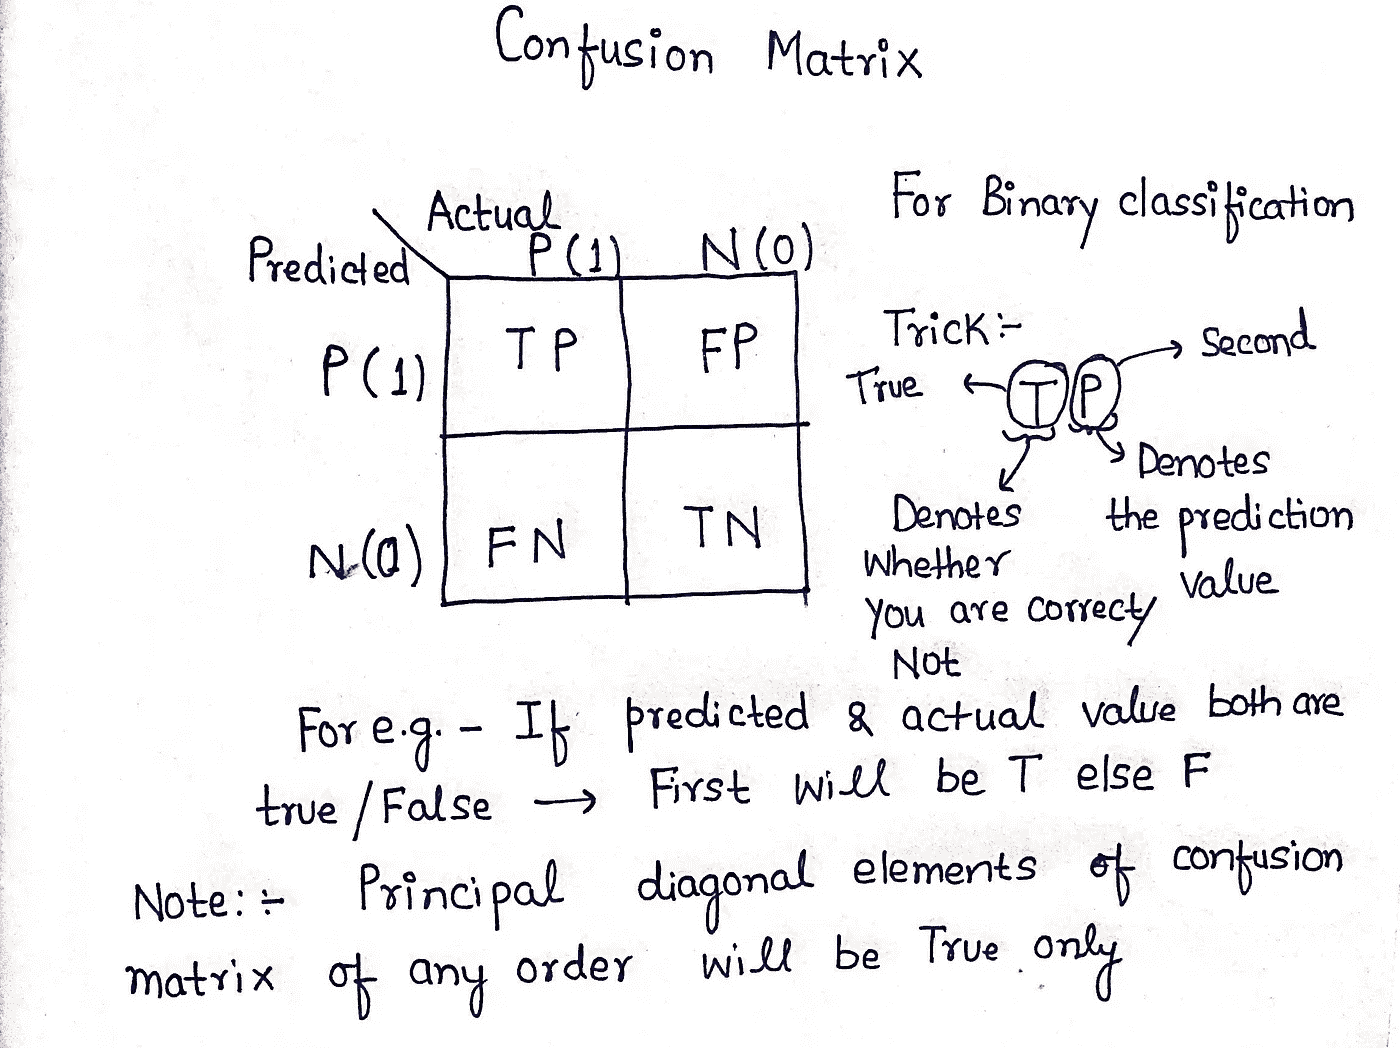 Confusion Matrix
For Binary classification
Actual
Predicted
P(1) N(0)
P(1) TP FP
N(0) FN TN
Trick :-
True ← T P → Second
Denotes
whether
you are correct/
Not
Denotes
the prediction
value
For e.g. - If predicted & actual value both are
true / False → First will be T else F
Note: :- Principal diagonal elements of confusion
matrix of any order will be True only